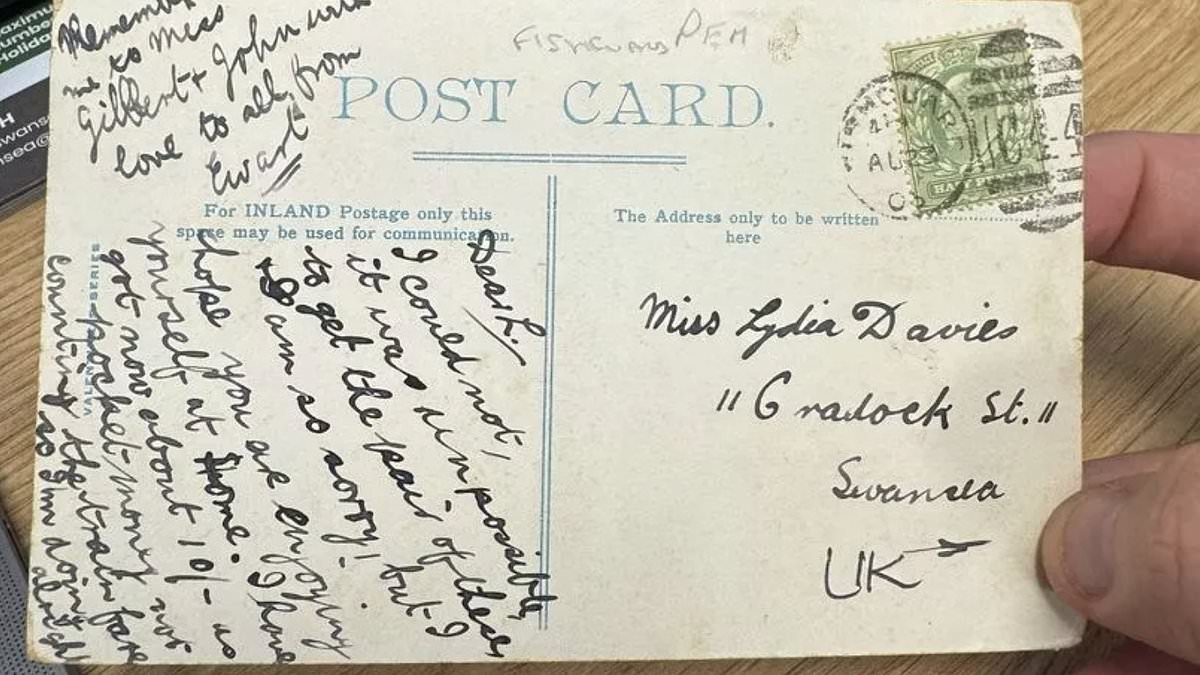 Remember
me to Miss
Gilbert & John with
love to all from
Ewart
FISHGUARD PEM
POST CARD.
For INLAND Postage only this
space may be used for communication.
The Address only to be written
here
AU 23
HALFPENNY
Dear L.
I could not,
it was unpossible,
to get the pair of these
& I am so sorry! but I
hope you are enjoying
yourself at home. I have
got now about 10/- as
pocket-money not
counting the train fare
so I'm doing
alright
VALENTINES SERIES
Miss Lydia Davies
"Cradock St."
Swansea
UK